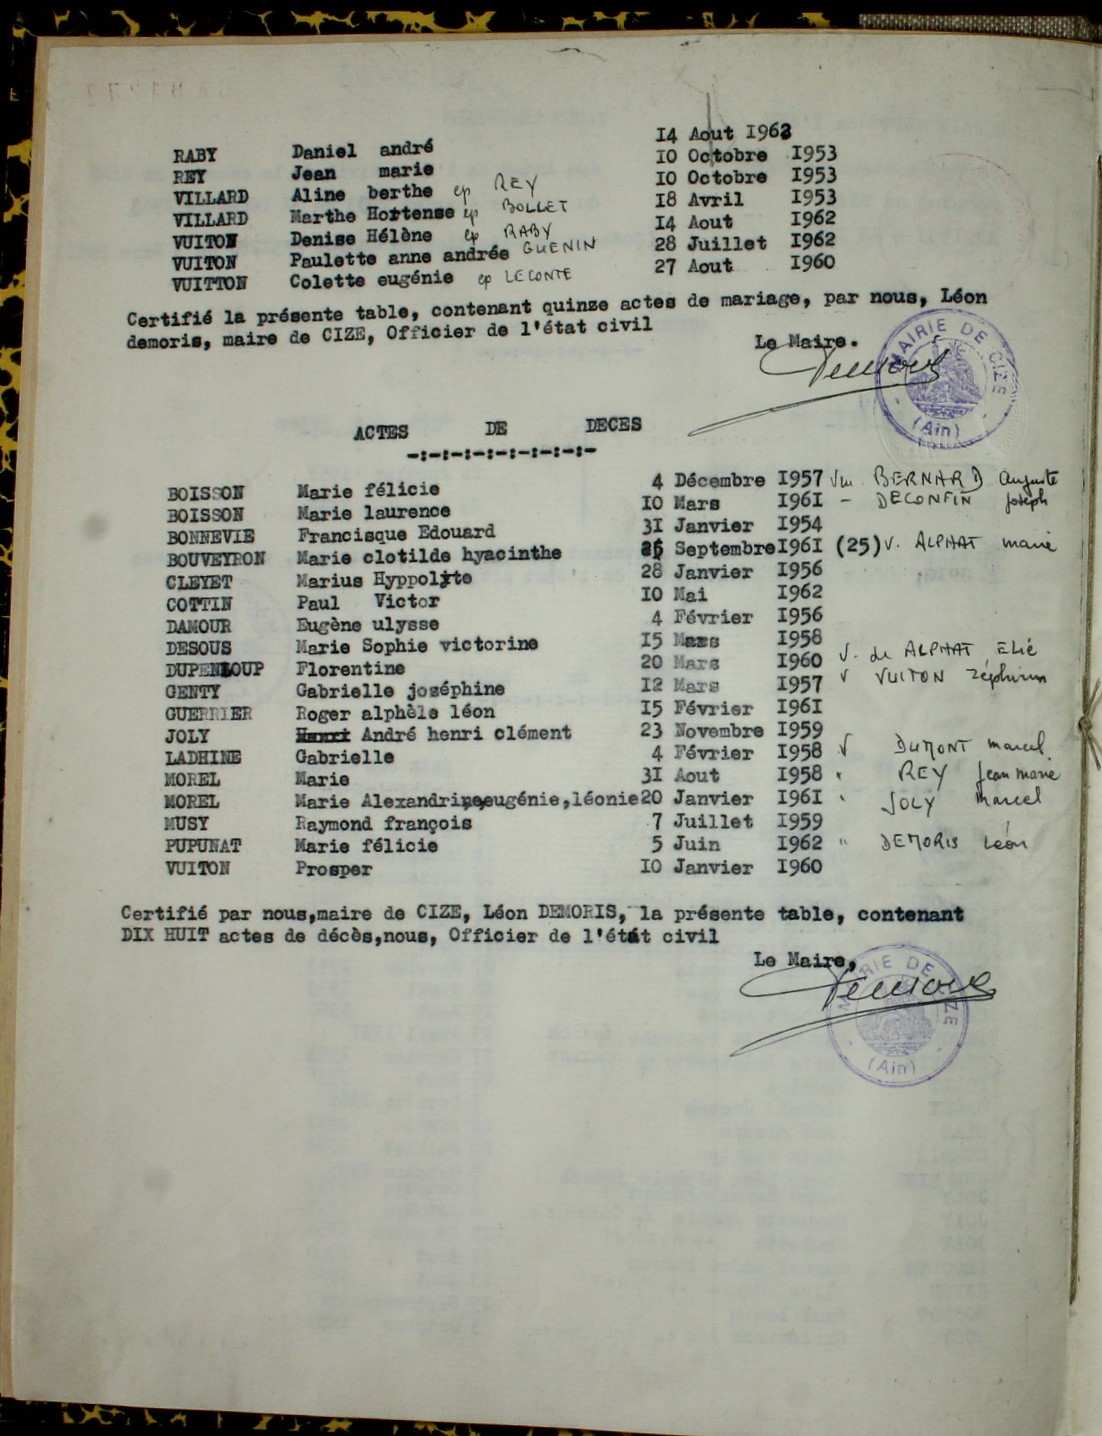 RABY Daniel andré 14 Aout 1962
REY Jean marie 10 Octobre 1953
VILLARD Aline berthe ep REY 10 Octobre 1953
VILLARD Marthe Hortense ep BOLLET 18 Avril 1953
VUITON Denise Hélène ep RABY 14 Aout 1962
VUITON Paulette anne andrée GUENIN 28 Juillet 1962
VUITTON Colette eugénie ep LECONTE 27 Aout 1960
Certifié la présente table, contenant quinze actes de mariage, par nous, Léon
demoris, maire de CIZE, Officier de l'état civil
Le Maire.
MAIRIE DE CIZE
(Ain)
ACTES DE DECES
-:-:-:-:-:-:-:-:-:-
BOISSON Marie félicie 4 Décembre 1957 BERNARD Auguste
BOISSON Marie laurence 10 Mars 1961 - DECONFIN Joseph
BONNEVIE Francisque Edouard 31 Janvier 1954
BOUVEYRON Marie clotilde hyacinthe Septembre 1961 (25) v. ALPHAT marie
CLEYET Marius Hyppolyte 28 Janvier 1956
COTTIN Paul Victor 10 Mai 1962
DAMOUR Eugène ulysse 4 Février 1956
DESOUS Marie Sophie victorine 15 Mars 1958
DUPENLOUP Florentine 20 Mars 1960 V. de ALPHAT Elie
GENTY Gabrielle joséphine 12 Mars 1957 v VUITON Zéphirin
GUERRIER Roger alphèle léon 15 Février 1961
JOLY André henri clément 23 Novembre 1959
LADHINE Gabrielle 4 Février 1958 V DUMONT marcel
MOREL Marie 31 Aout 1958 " REY Jean marie
MOREL Marie Alexandrine,eugénie,léonie 20 Janvier 1961 " JOLY Marcel
MUSY Raymond françois 7 Juillet 1959
PUPUNAT Marie félicie 5 Juin 1962 " DEMORIS Léon
VUITON Prosper 10 Janvier 1960
Certifié par nous,maire de CIZE, Léon DEMORIS, la présente table, contenant
DIX HUIT actes de décès,nous, Officier de l'état civil
Le Maire,
MAIRIE DE CIZE
(Ain)